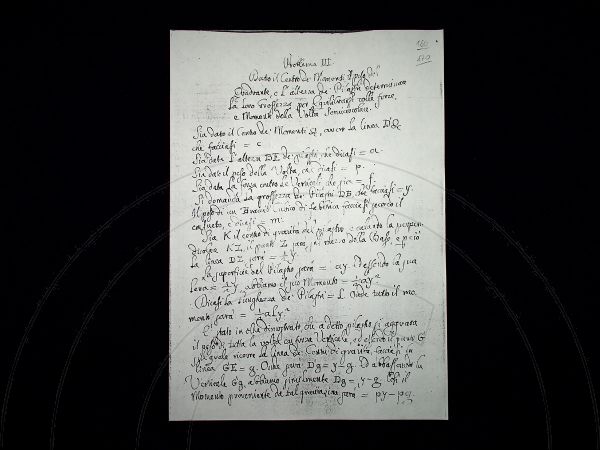 160
170
Problema III.
Dato il Centro de' Momenti, il peso del
Quadrante, e l'altezza de' Pilastri determinare
la loro grossezza per equilibrarsi colle forze,
e Momento della Volta Semicircolare.
Sia dato il Centro de' Momenti Q, ovvero la linea DQ
che facciasi = c
Sia data l'altezza DI de' pilastri, che dicasi = a.
Sia dato il peso della Volta, che dicasi = p.
Sia data la forza contro le Verticali che sia = f.
Si domanda la grossezza de' Pilastri DB, che facciasi = y.
Il peso di un Braccio Cubico di fabbrica facciasi secondo il
consueto, e dicasi = m.
Sia K il centro di gravità del pilastro, e calando la perpen-
dicolare KZ, il punto Z sarà nel mezzo della Base, e però
la linea DZ sarà = ½ y.
La superficie del Pilastro sarà = ay. Ed essendo la sua
leva = ½ y, abbiamo il suo Momento = ½ ay².
Dicasi la lunghezza de' Pilastri = L. Onde tutto il mo-
mento sarà = ½ aLy².
E' stato in oltre dimostrato che a detto pilastro si appoggia
il peso di tutta la volta con forza Verticale, ed essendo il punto G
sul quale ricorre la linea de' Centri di gravità, facciasi la
linea GE = g. Onde sarà Dg = y - g. Ed abbassando la
Verticale Gg, abbiamo similmente Dg = y - g. Così il
Momento proveniente da tal gravitazione sarà = py - pg.